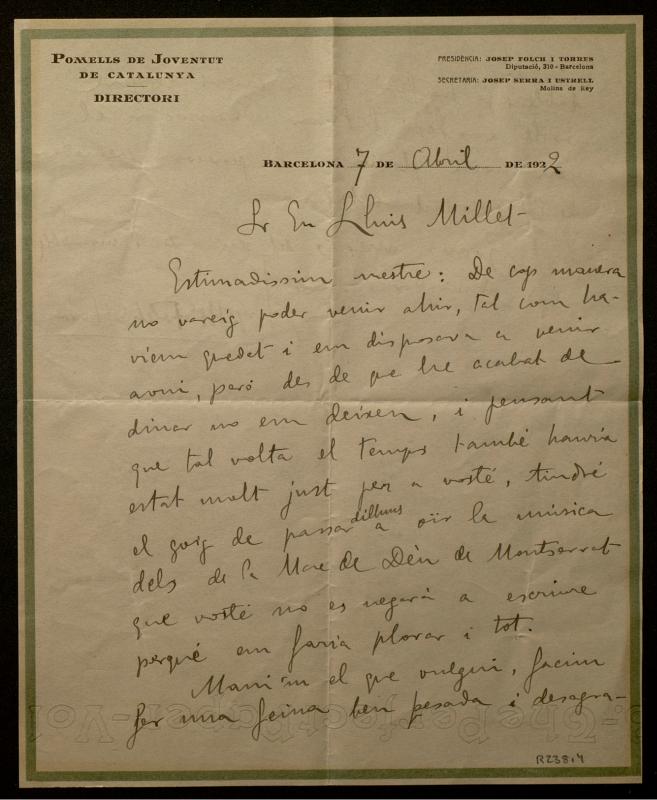 POMELLS DE JOVENTUT
DE CATALUNYA
DIRECTORI
PRESIDÈNCIA: JOSEP FOLCH I TORRES
Diputació, 310 - Barcelona
SECRETARIA: JOSEP SERRA I USTRELL
Molins de Rey
BARCELONA 7 DE Abril DE 1922
Sr En Lluis Millet
Estimadissim mestre: De cap manera
no vareig poder venir ahir, tal com ha-
viem quedat i em disposava a venir
avui, peró des de que he acabat de
dinar no em deixen, i pensant
que tal volta el temps també hauria
estat molt just per a vosté, tindré
el goig de passar dilluns a oïr la música
dels de la Mare de Dèu de Montserrat
que vosté no es negarà a escriure
perqué em faria plorar i tot.
Mani'm el que vulgui, facim
fer una feina ben pesada i desagra-
R238,4